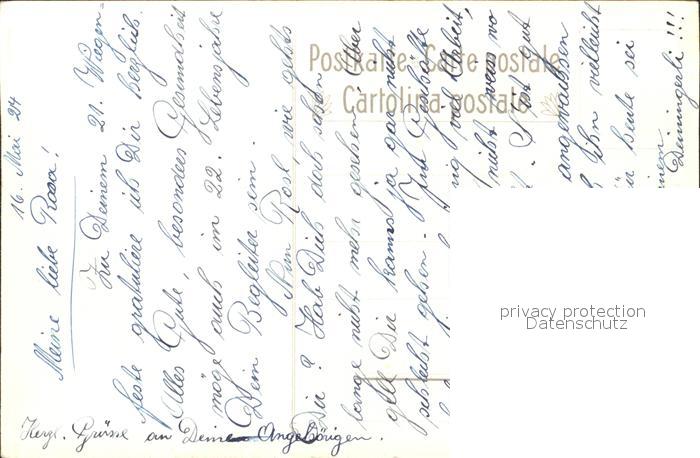 Postkarte. Carte postale
Cartolina postale
16. Mai 24
Meine liebe Rosa!
Zu Deinem 21. Wiegen-
feste gratuliere ich Dir herzlich.
Alles Gute, besonders Gesundheit
möge auch im 22. Lebensjahre
Dein Begleiter sein.
Nun Rosi, wie gehts
Dir? Hab Dich doch schon
lange nicht mehr gesehen. Aber
gell Dir kanns ja gar nicht
schlecht gehen.
viel Arbeit,
nicht wenn wo
gut
ihn vielleicht
heute sei
!!!
Herzl. Grüsse an Deine Angehörigen.
privacy protection
Datenschutz